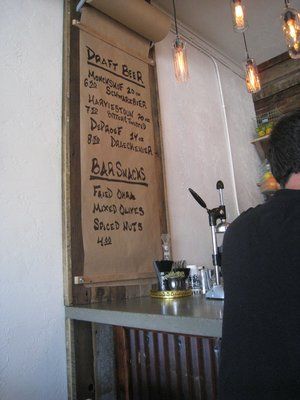 DRAFT BEER
MONCKSHIF 20oz
6.00 SCHWARZBIER
HARVIESTOUN 20oz
7.00 BITTER & TWISTED
DEPROEF 14oz
8.00
BAR SNACKS
FRIED OKRA
MIXED OLIVES
SPICED NUTS
4.00